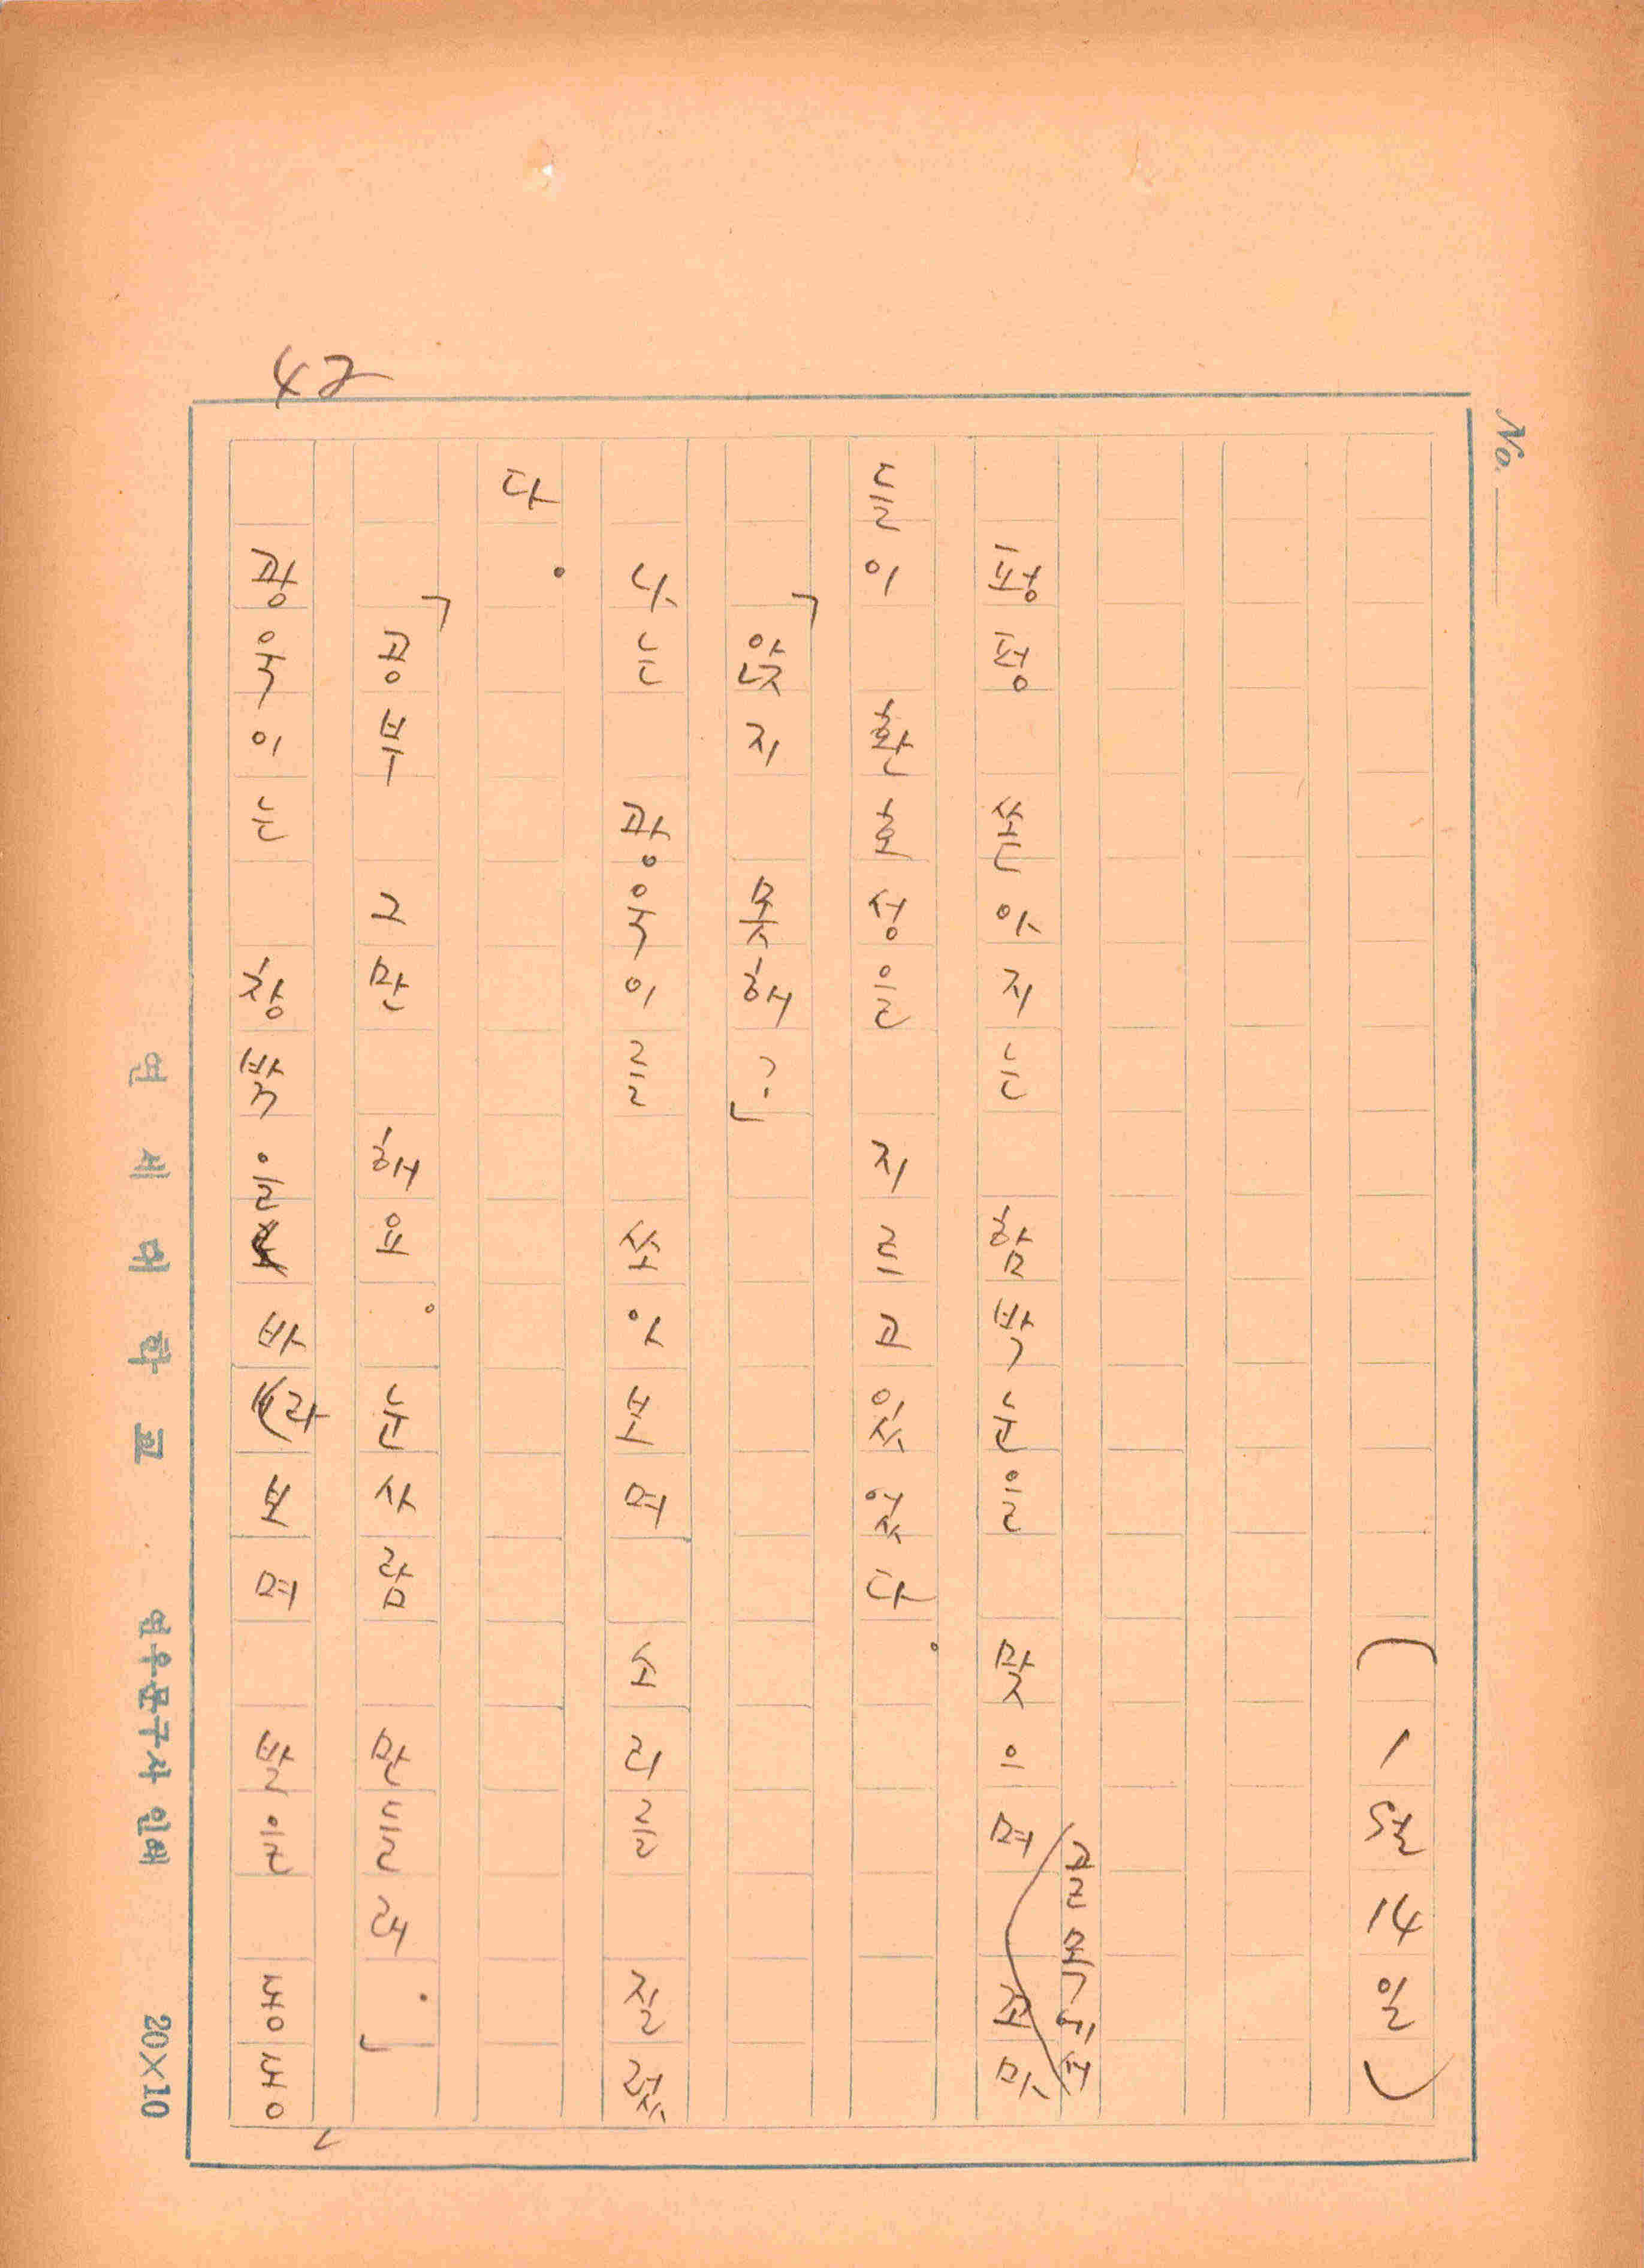 No.
(1월 14일)
펑펑 쏟아지는 함박눈을 맞으며 골목에서 꼬마
들이 환호성을 지르고 있었다.
「앉지 못해?」
나는 광욱이를 쏘아보며 소리를 질렀
다.
「공부 그만 해요. 눈사람 만들래.」
광욱이는 창밖을 바라보며 발을 동동
42
연세대학교 연우문구사 인쇄 20×10